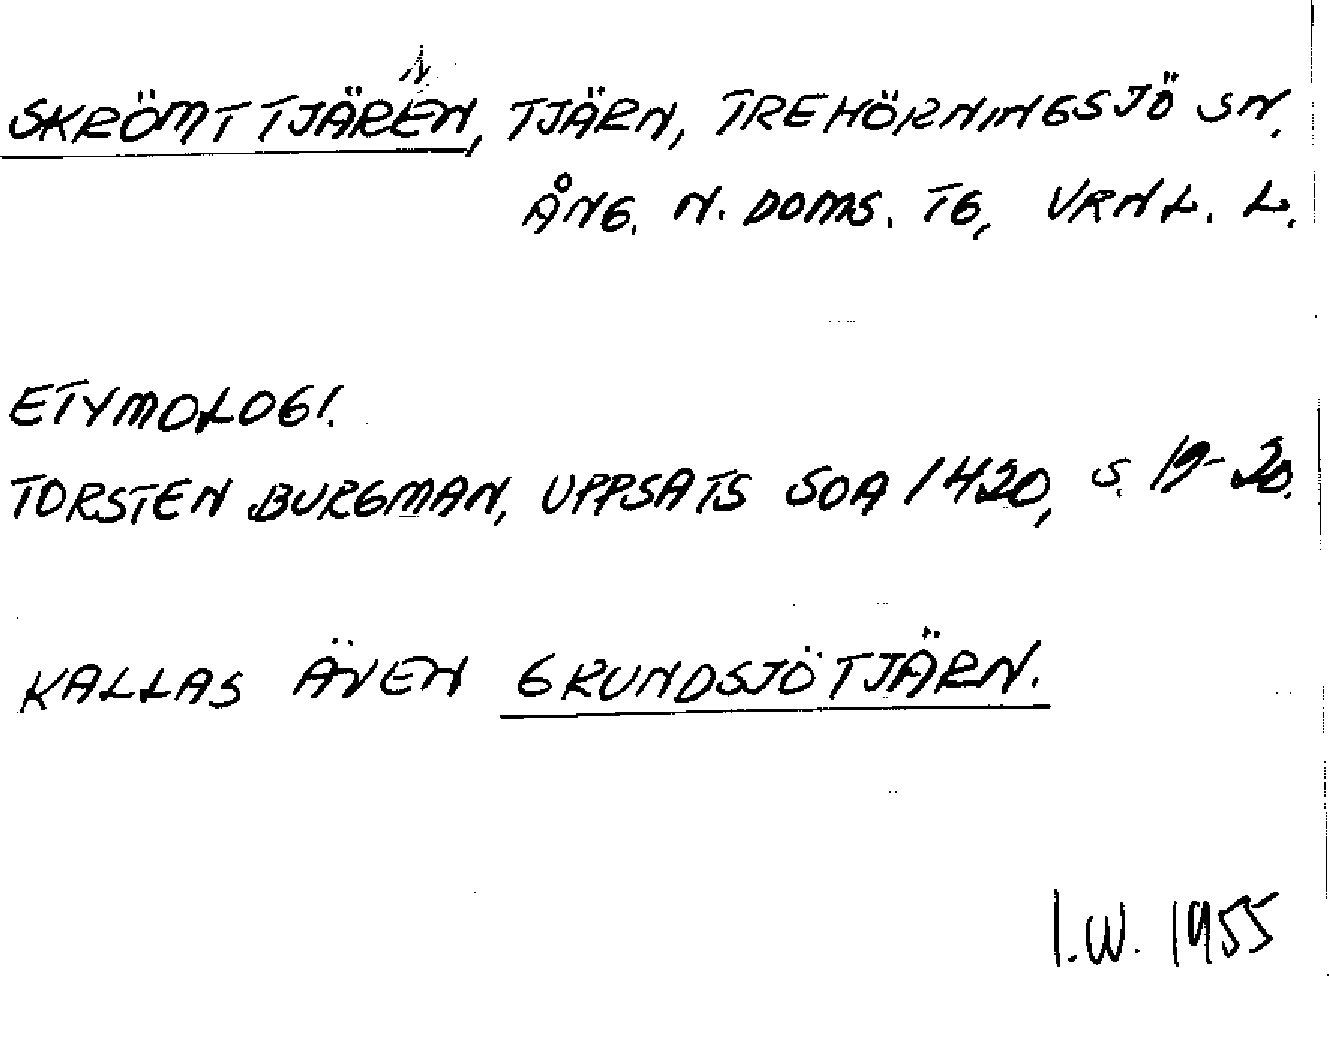 SKRÖMTTJÄRNEN, TJÄRN, TREHÖRNINGSJÖ SN,
ÅNG. N. DOMS. TG, VRNL. L.
ETYMOLOGI.
TORSTEN BURGMAN, UPPSATS SOA 1420, S. 19-20.
KALLAS ÄVEN GRUNDSJÖTJÄRN.
I.W. 1955